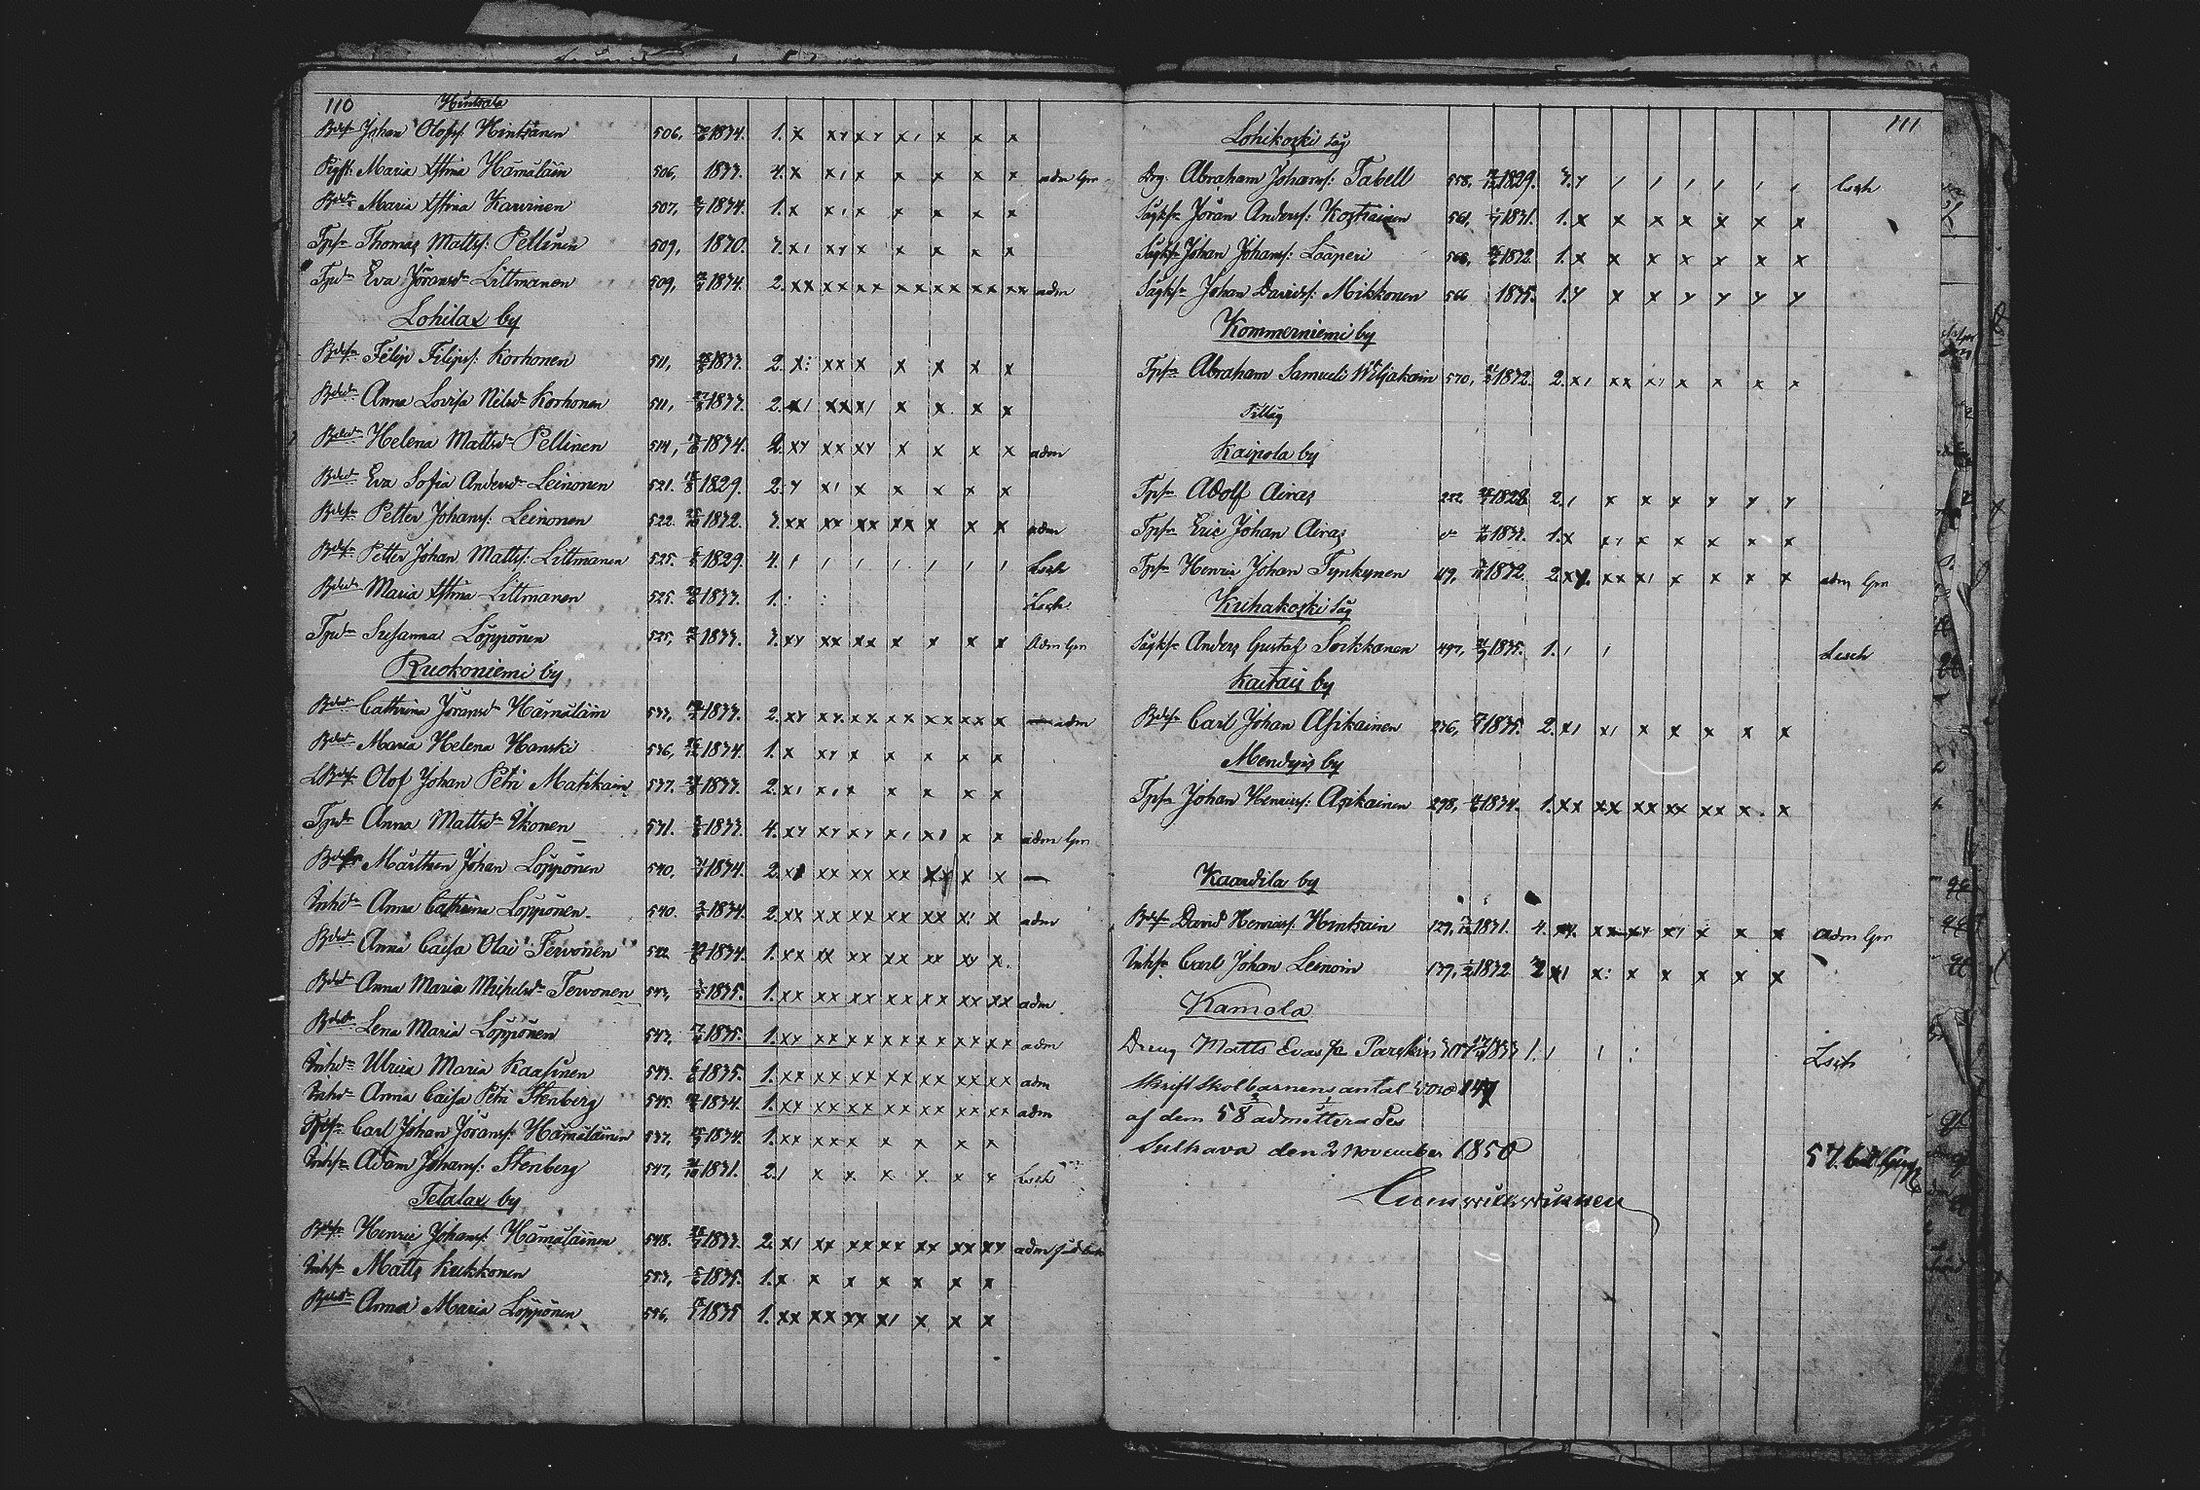 110
Hintsala
Bdsn Johan Olofss: Hintsanen 506, 1834. 1. x xx xx x, x x x
Pigfl. Maria Stina Hämäläin 506, 1833. 4. x x, x x x x x adm Gm
Bdr Maria Stina Karvinen 507, 1834. 1. x x, x x x x x
Tpsn Thomas Matts: Pellinen 509, 1830. x, xx x x x x x
Tpdr Eva Jöransdr Littmanen 509, 1834. 2. xx xx xx xx xx xx xx adm
Lohilax by
Bdsn Filip Filips: Korhonen 511, 1833. 2. x: xx x x x x x
Bdedr Anna Lovisa Nilsdr Korhonen 511, 1833. 2. x, xx x, x x x x
Bdedr Helena Mattsdr Pellinen 514, 1834. 2. xx xx xx x x x x adm
Bdedr Eva Sofia Andersdr Leinonen 521. 1829. 2. x x, x x x x x
Bdsn Petter Johanss: Leinonen 522. 1832. xx xx xx xx x x x adm
Bdsn Petter Johan Matts: Littmanen 525. 1829. 4. / / / / / / / Lsch
Bdedr Maria Stina Littmanen 525. 1833. 1. : : Lsch
Tpdr Susanna Löppönen 525, 1833. xx xx xx x x x x Adm Gm
Ruokoniemi by
Bdedr Cathrina Jöransdr Hämäläin 533, 1833. 2. xx xx xx xx xx xx x adm
Bdedr Maria Helena Hanski 536, 1834. 1. x xx x x x x x
Bdsn Olof Johan Petri Matikain 537. 1833. 2. x, x, x x x x x
Tpdr Anna Mattsdr Ikonen 531. 1833. 4. xx xx xx x, x, x x adm Gm
Bdsn Mårthen Johan Löppönen 540, 1834. 2. x xx xx xx xx x x —
Inhdr Anna Cathrina Löppönen 540. 1834. 2. xx xx xx xx xx x, x adm
Bdedr Anna Caisa Olai Tervonen 542 1834. 1. xx xx xx xx xx xx x.
Bdedr Anna Maria Michelsdr Tervonen 543, 1835. 1. xx xx xx xx xx xx xx adm
Bdedr Lena Maria Löppönen 543, 1835. 1. xx xx xx xx xx xx xx adm
Inhdr Ulrica Maria Kaasinen 543. 1835. 1. xx xx xx xx xx xx xx adm
Inhdr Anna Caisa Petri Stenberg 545. 1834. 1. xx xx xx xx xx xx xx adm
Tpsn Carl Johan Jöranss: Hämäläinen 537. 1834. 1. xx xx x x x x x
Inhsn Adam Johanss: Stenberg 547, 1831. 2. / x x x x x x Lsch
Telalax by
Bdsn Henric Johanss: Hämäläinen 548. 1833. 2. x, xx xx xx xx xx xx adm
Inhsn Matts Kukkonen 553, 1835. 1. x x x x x x x
Bdedr Anna Maria Löppönen 556, 1835 1. xx xx xx x, x x x
111
Lohikoski såg
Drg. Abraham Johanss: Tabell 558, 1829. x / / / / / / Lsch
Sågksn Jöran Anderss: Kostiainen 561, 1831. 1. x x x x x x x
Sågksn Johan Johanss: Lääperi 568, 1832. 1. x x x x x x x
Sågksn Johan Davids: Mikkonen 566 1835. 1. x x x x x x x
Kommerniemi by
Tpsn Abraham Samueli Wiljakain 570, 1832. 2. x, xx x, x x x x
Tilläg
Kaipola by
Tpsn Adolf Airas 252. 1828. 2. / x x x x x x
Tpsn Eric Johan Airas do 1833. 1. x x, x x x x x
Tpsn Henric Johan Tynkynen 119, 1832. 2. xx. xx x, x x x x adm Gm
Kuhakoski Såg
Sågksn Anders Gustaf Soikkanen 497, 1835. 1. / / Lisch
Kaitais by
Bdsn Carl Johan Asikainen 276, 1835. 2. x, x, x x x x x
Mendyis by
Tpsn Johan Henricss: Asikainen 298, 1834. 1. xx xx xx xx xx x x
Kaartila by
Bdsn David Henricss: Hintsain 129, 1831. 4. xx. xx xx x, x x x adm Gm
Inhsn Carl Johan Leinoin 139, 1832 2 x, x: x x x x x
Kamola
Dreng Matts Evasson Parskin 307 1833 1. / / : Lsch
Skriftskolbarnens antal voro 147
af dem 58 admitterades
Sulkava den 2 November 1850